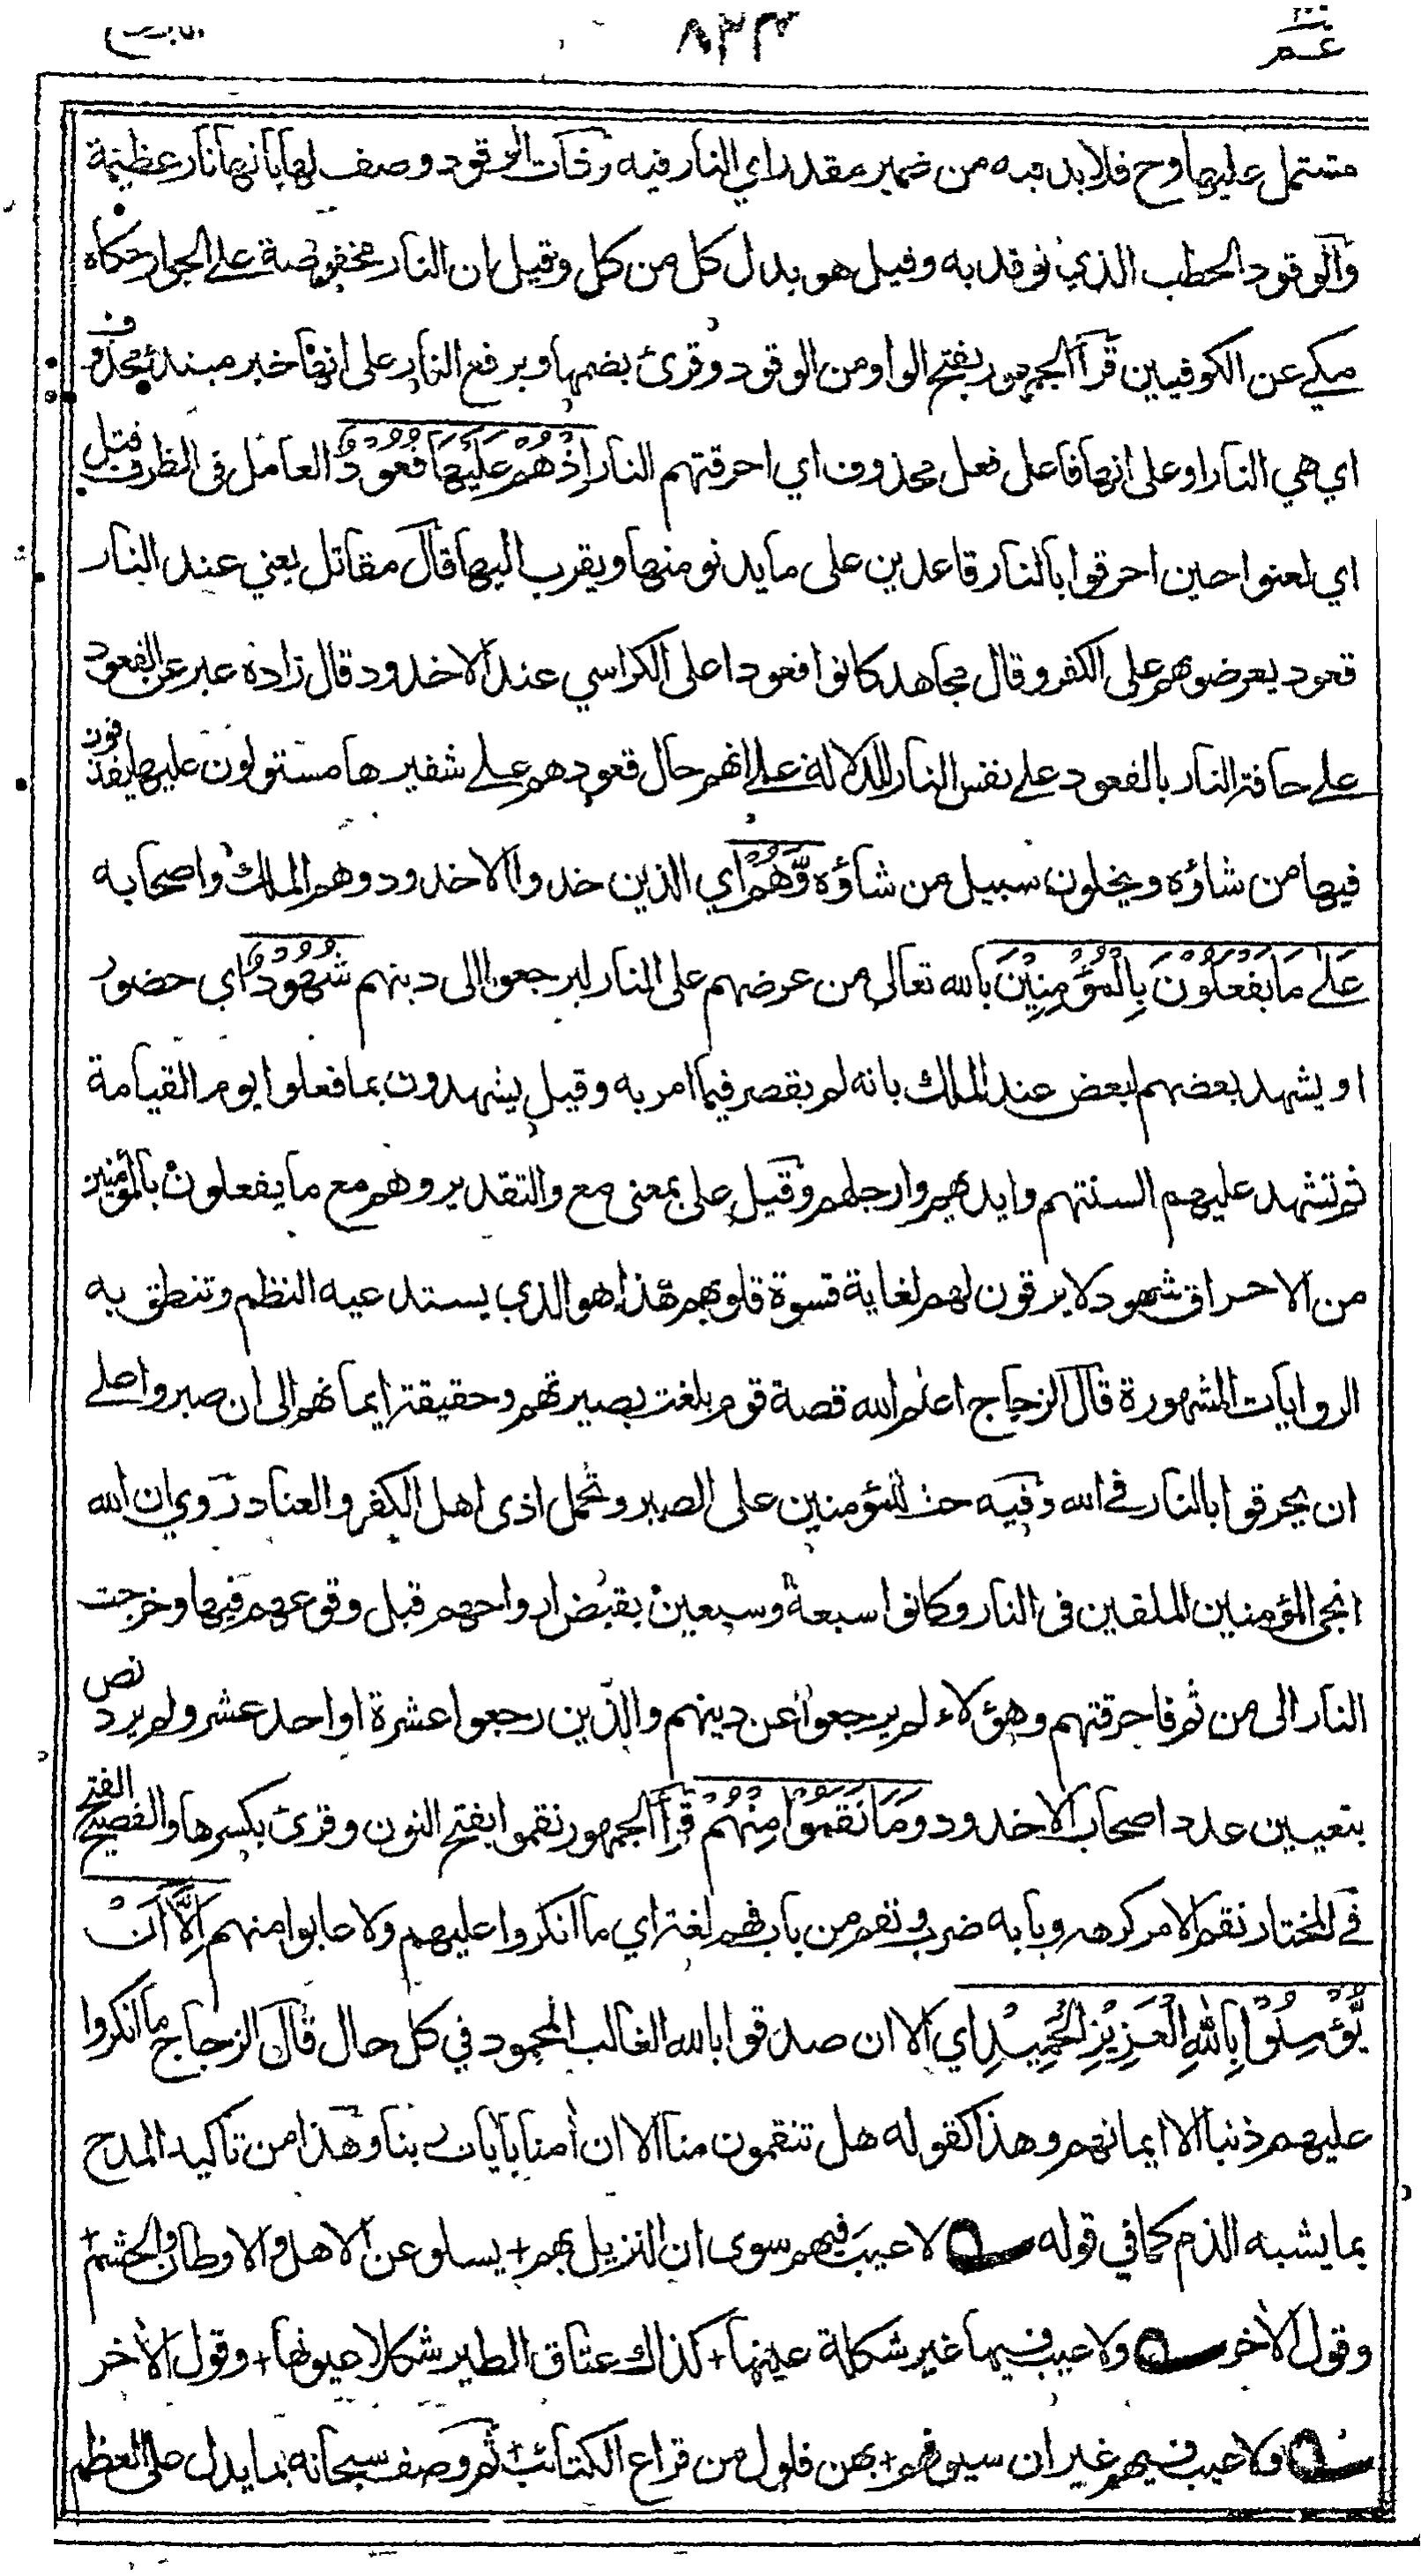 عم ٨٢٣
مشتمل عليها وح فلابد فيه من ضمير مقدر اي النار فيه وذات الوقود وصف لها بانها نار عظيمة
والوقود الحطب الذي توقد به وقيل هو بدل كل من كل وقيل ان النار مخفوضة على الجوار حكاه
مكي عن الكوفيين قرأ الجمهور بفتح الواو من الوقود وقرئ بضمها وبرفع النار على انها خبر مبتدئ محذوف
اي هي النار او على انها فاعل فعل محذوف اي احرقتهم النار اِذْ هُمْ عَلَيْهَا قُعُوْدٌ العامل في الظرف قتل
اي لعنوا حين احرقوا بالنار قاعدين على ما يدنو منها ويقرب اليها قال مقاتل يعني عند النار
قعود يعرضوهم على الكفر وقال مجاهد كانوا قعودا على الكراسي عند الاخدود قال زاده عبر عن القعود
على حافة النار بالقعود على نفس النار للدلالة على انهم حال قعودهم على شفيرها مستولون عليها يقذفون
فيها من شاؤه ويخلون سبيل من شاؤه وَّهُمْ اي الذين خدوا الاخدود وهم الملك واصحابه
عَلٰى مَا يَفْعَلُوْنَ بِالْمُؤْمِنِيْنَ بالله تعالى من عرضهم على النار ليرجعوا الى دينهم شُهُوْدٌ اي حضور
او يشهد بعضهم لبعض عند الملك بانه لم يقصر فيما امر به وقيل يشهدون بما فعلوا يوم القيامة
ثم تشهد عليهم السنتهم وايديهم وارجلهم وقيل على بمعنى مع والتقدير وهم مع ما يفعلون بالمؤمنين
من الاحراق شهود لا يرقون لهم لغاية قسوة قلوبهم هذا هو الذي يستدعيه النظم وتنطق به
الروايات المشهورة قال الزجاج اعلم الله قصة قوم بلغت بصيرتهم وحقيقة ايمانهم الى ان صبروا على
ان يحرقوا بالنار في الله وفيه حث للمؤمنين على الصبر وتحمل اذى اهل الكفر والعناد روي ان الله
انجى المؤمنين الملقين في النار وكانوا سبعة وسبعين بقبض ارواحهم قبل وقوعهم فيها وخرجت
النار الى من ثم فاحرقتهم وهؤلاء لم يرجعوا عن دينهم والذين رجعوا عشرة او احد عشر ولم يرد نص
بتعيين عدد اصحاب الاخدود وَمَا نَقَمُوْا مِنْهُمْ قرأ الجمهور نقموا بفتح النون وقرئ بكسرها والفصيح الفتح
في المختار نقم الامر كرهه وبابه ضرب ونقم من باب فهم لغة اي ما انكروا عليهم ولا عابوا منهم اِلَّا اَنْ
يُّؤْمِنُوْا بِاللّٰهِ الْعَزِيْزِ الْحَمِيْدِ اي الا ان صدقوا بالله الغالب المحمود في كل حال قال الزجاج ما انكروا
عليهم ذنبا الا ايمانهم وهذا كقوله هل تنقمون منا الا ان امنا بايات ربنا وهذا من تاكيد المدح
بما يشبه الذم كما في قوله لا عيب فيهم سوى ان النزيل بهم + يسلو عن الاهل والاوطان والحشم +
وقول الاخر ولا عيب فيها غير شكلة عينها + كذاك عتاق الطير شكلا عيونها + وقول الاخر
ولا عيب فيهم غير ان سيوفهم + بهن فلول من قراع الكتائب + ثم وصف سبحانه بما يدل على العظم